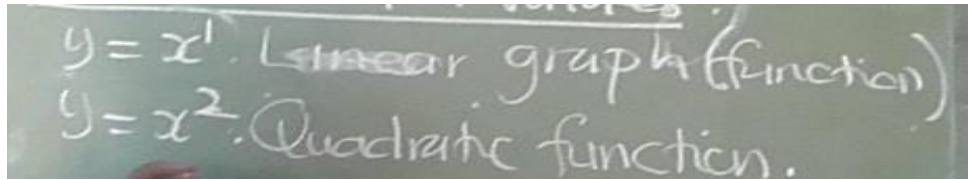 y = x¹. Linear graph (function)
y = x². Quadratic function.